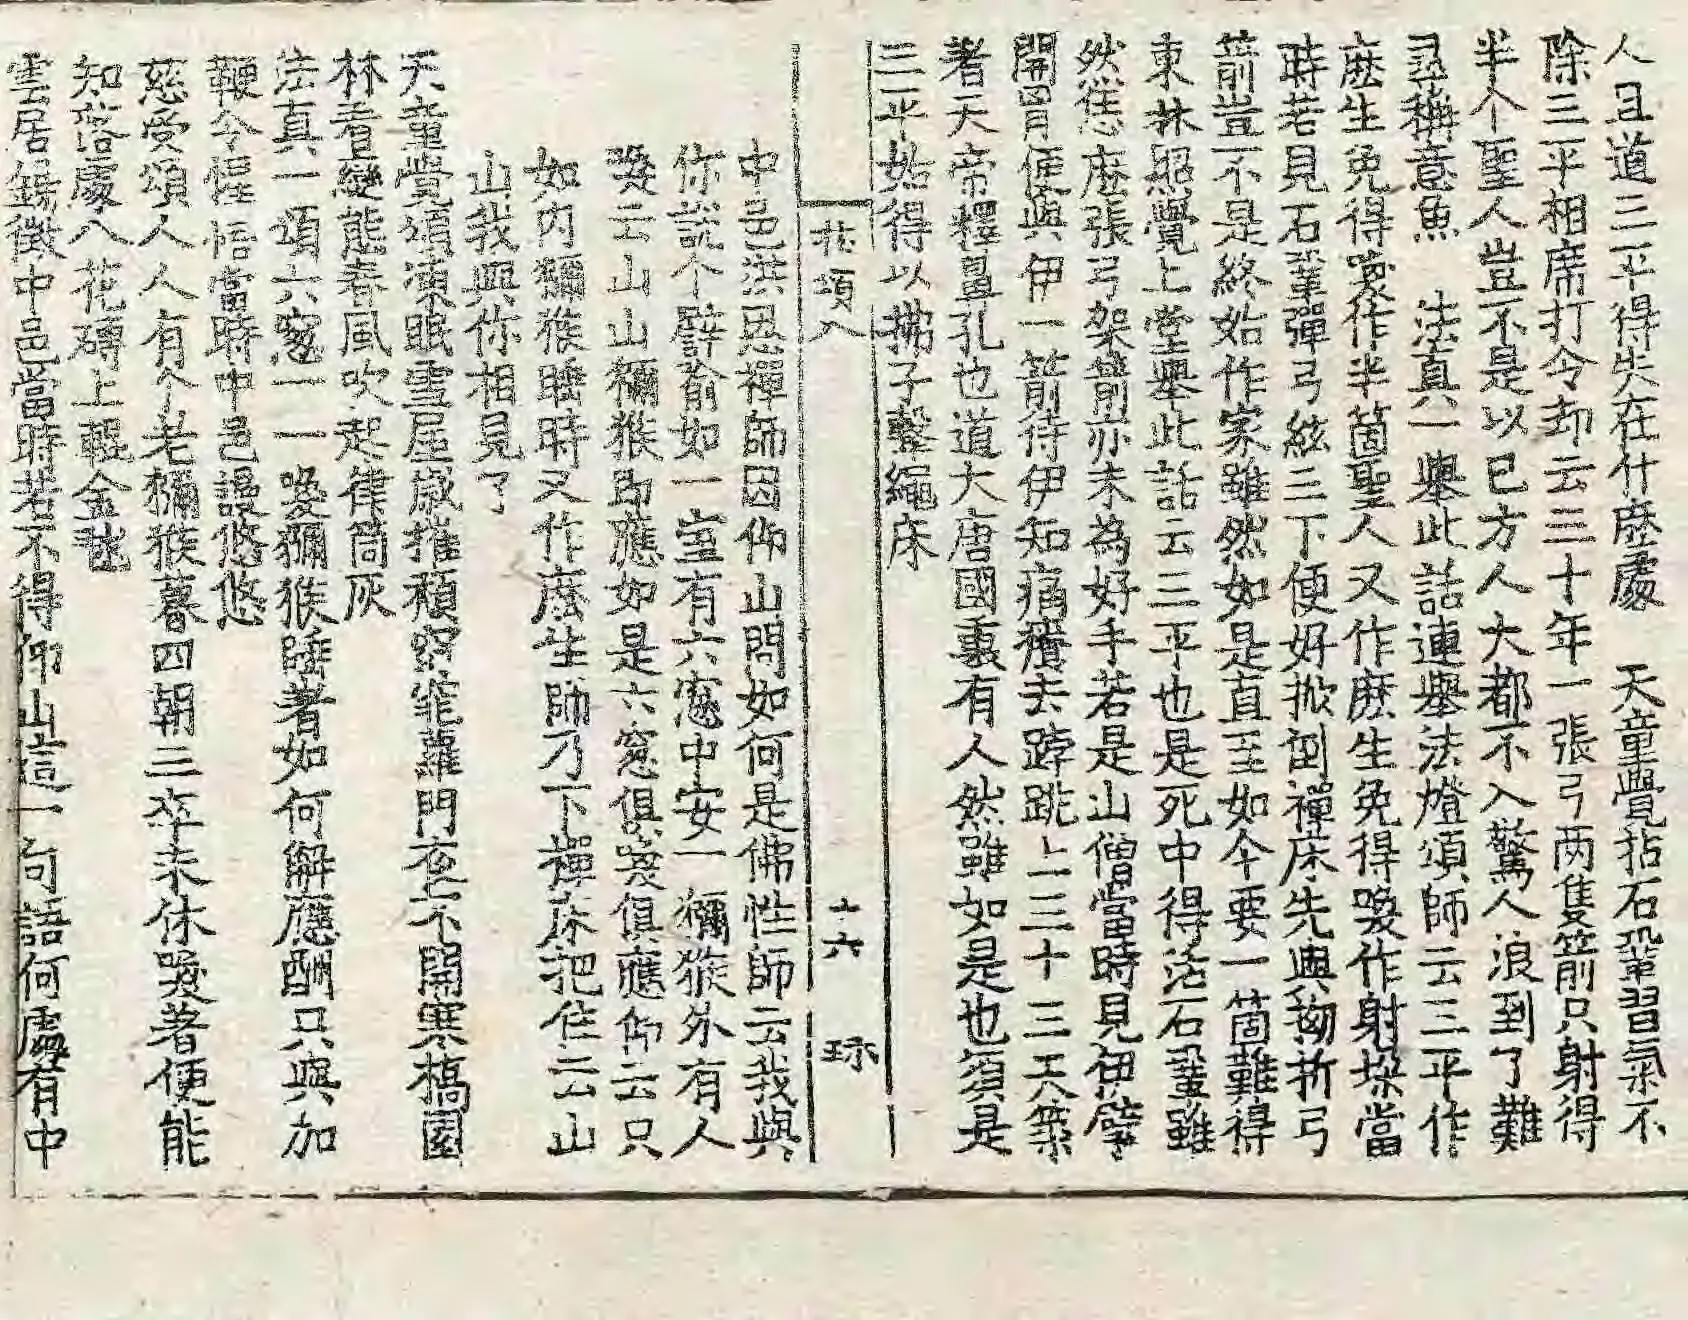 人且道三平得失在什麽處　天童覺拈石鞏習氣不
除三平相席打令却云三十年一張弓两隻箭只射得
半个聖人豈不是以已方人大都不入驚人浪到了難
尋稱意魚　法真一舉此話連舉法燈頌師云三平作
麽生免得喚作半箇聖人又作麽生免得喚作射垛當
時若見石鞏彈弓絃三下便好掀倒禪床先與拗折弓
箭豈不是終始作家雖然如是直至如今要一箇難得
東林照覺上堂舉此話云三平也是死中得活石鞏雖
然恁麽張弓架箭亦未為好手若是山僧當時見伊擘
開胃便與伊一箭待伊知痛癢去𨁝跳上三十三天築
著天帝釋鼻孔也道大唐國裏有人然雖如是也須是
三平始得以拂子擊繩床
拈頌八　十六　琢
中邑洪恩禪師因仰山問如何是佛性師云我與
你說个譬喻如一室有六窓中安一獼猴外有人
喚云山山獼猴即應如是六窓俱喚俱應仰云只
如内獼猴睡時又作麽生師乃下禪床把住云山
山我與你相見了
天童覺頌凍眠雪屋歲摧頹窈窕蘿門夜不開寒槁園
林看變態春風吹起律筒灰
法真一頌六窓一一喚獼猴睡著如何解應酬只與加
鞭令惺悟當時中邑謾悠悠
慈受頌人人有个老獼猴暮四朝三卒未休喚著便能
知落處八花磚上輥金毬
雲居錫徵中邑當時若不得仰山這一句語何處有中